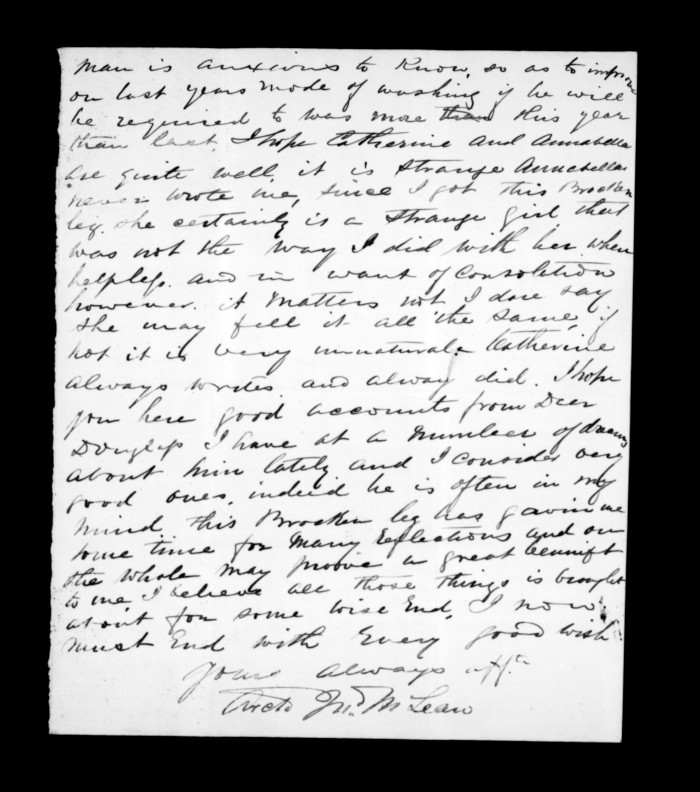 man is anxcious to Know, so as to improve
on last years mode of washing if he will
be required to was more than this year
than last. I hope Catherine and Annabella
are quite well it is strange Annabella
never wrote me, since I got this Brocken
leg. she certainly is a strange girl that
was not the way I did with her when
helpless. and in want of Consolation
however. it matters not I dare say
she may fell it all the same, if
not it is very unnatural. Catherine
always writes and alway did. I hope
you here good accounts from Dear
Douglas I have at a number of dreams
about him lately and I consider very
good ones. indeed he is often in my
mind this Brocken leg has gavin me
some time for Many Reflections and on
the whole may proove a great bennift
to me I believe all those things is brought
about for some wise End, I now
must End with Every good wish
Yours always afft.
Archd Jno. McLean